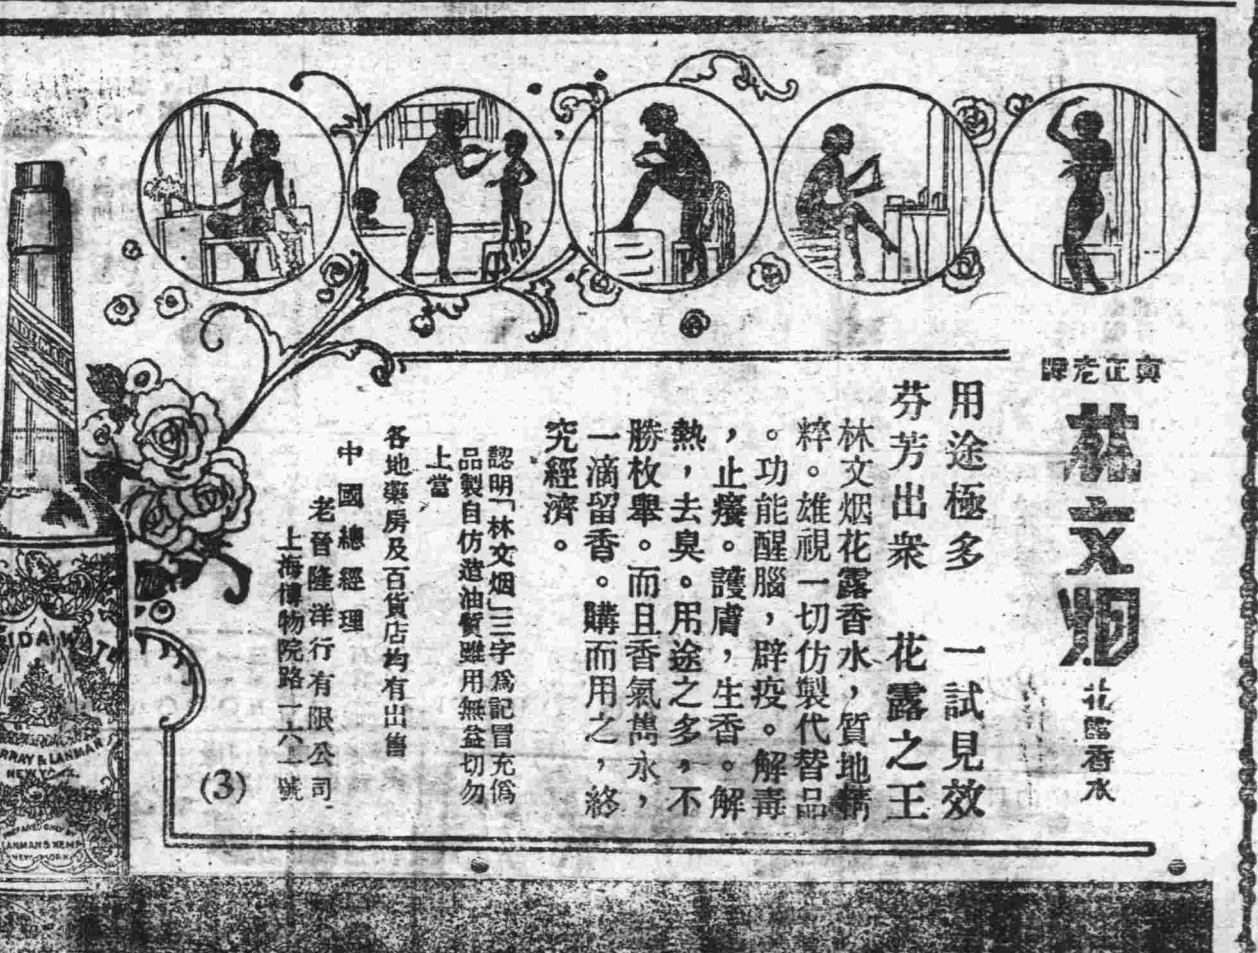 真正老牌
林文烟
花露香水
用途極多　一試見效
芬芳出衆　花露之王
林文烟花露香水，質地精
粹。雄視一切仿製代替品
。功能醒腦，辟疫。解毒
，止癢。護膚，生香。解
熱，去臭。用途之多，不
勝枚舉。而且香氣雋永，
一滴留香。購而用之，終
究經濟。
認明「林文烟」三字爲記冒充僞
品製自仿造油質雖用無益切勿
上當
各地藥房及百貨店均有出售
中國總經理
老晉隆洋行有限公司
上海博物院路一六一號
(3)
RIDA WATE
RRAY & LANMAN
NEW YORK
PREPARED ONLY BY
LANMAN & KEMP
NEW YORK